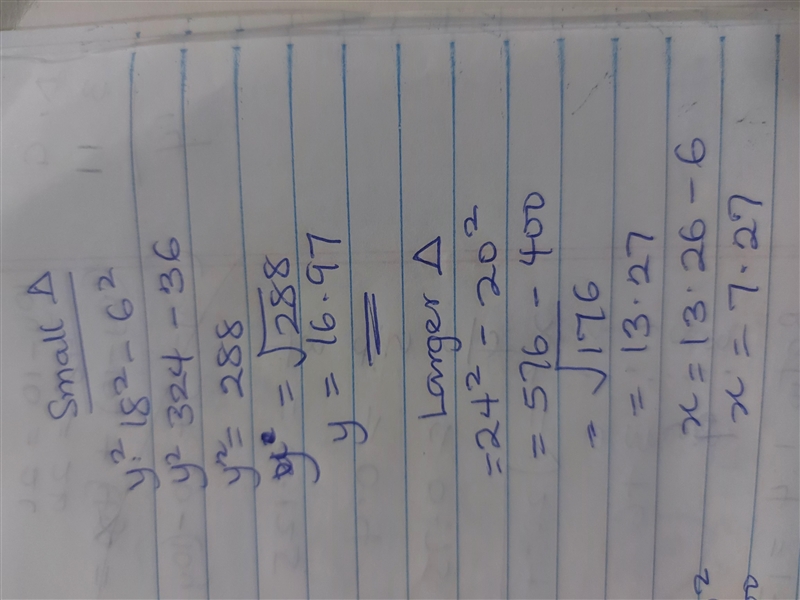 Small Δ
y² 18² - 6²
y² 324 - 36
y² = 288
y² = √288
y = 16.97
Larger Δ
= 24² - 20²
= 576 - 400
= √176
= 13.27
x = 13.26 - 6
x = 7.27